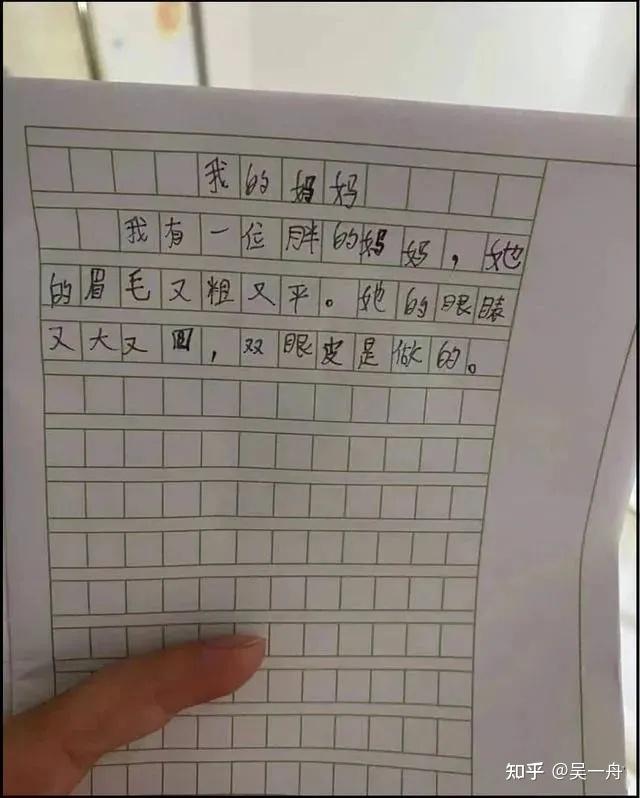 我的妈妈
我有一位胖的妈妈，她
的眉毛又粗又平。她的眼睛
又大又圆，双眼皮是做的。
知乎 @吴一舟